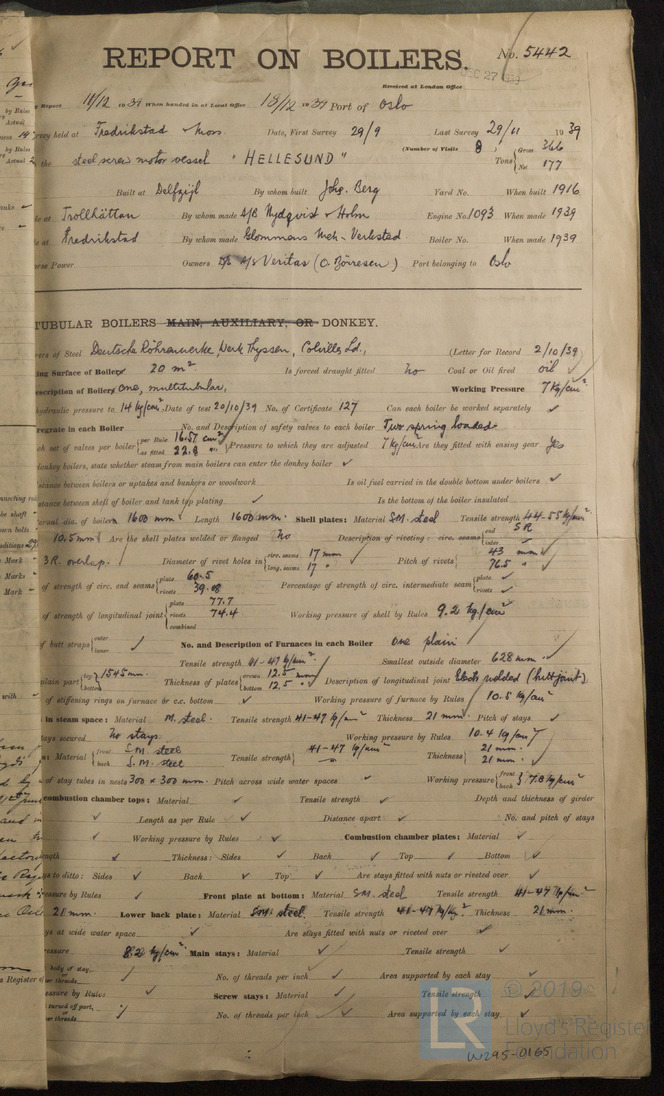 REPORT ON BOILERS.
No. 5442
Received at London Office
DEC 27 1939
Report 11/12 1939 When handed in at Local Office 18/12 1939 Port of Oslo
held at Fredrikstad & Moss Date, First Survey 29/9 Last Survey 29/11 1939
(Number of Visits 8 ) Tons Gross 366 Net 177
the steel screw motor vessel "HELLESUND"
Built at Delfzijl By whom built Johs. Berg Yard No. When built 1916
at Trollhättan By whom made A/B Nydqvist & Holm Engine No. 1093 When made 1939
at Fredrikstad By whom made Glommens Mek. Verksted Boiler No. When made 1939
Power Owners A/S Veritas (O. Börresen) Port belonging to Oslo
TUBULAR BOILERS MAIN, AUXILIARY, OR DONKEY.
of Steel Deutsche Röhrenwerke, Werk Thyssen, Colvilles Ld., (Letter for Record 2/10/39)
Surface of Boilers 20 m² Is forced draught fitted no Coal or Oil fired oil
Description of Boilers one, multitubular, Working Pressure 7 kg/cm²
hydraulic pressure to 14 kg/cm². Date of test 20/10/39 No. of Certificate 127 Can each boiler be worked separately ✓
grate in each Boiler No. and Description of safety valves to each boiler Two spring loaded
set of valves per boiler per Rule 16.57 cm² as fitted 22.8 " Pressure to which they are adjusted 7 kg/cm² Are they fitted with easing gear Yes
donkey boilers, state whether steam from main boilers can enter the donkey boiler ✓
distance between boilers or uptakes and bunkers or woodwork Is oil fuel carried in the double bottom under boilers ✓
distance between shell of boiler and tank top plating ✓ Is the bottom of the boiler insulated
dia. of boilers 1600 mm Length 1600 mm. Shell plates: Material S.M. steel Tensile strength 44-55 kg/cm²
10.5 mm Are the shell plates welded or flanged no Description of riveting: circ. seams end S R inter. ✓
3 R. overlap. Diameter of rivet holes in circ. seams 17 mm long. seams 17 " Pitch of rivets 43 mm 76.5 "
of strength of circ. end seams plate 60.5 rivets 39.08 Percentage of strength of circ. intermediate seam plate ✓ rivets ✓
of strength of longitudinal joint plate 77.7 rivets 74.4 combined Working pressure of shell by Rules 9.2 kg/cm²
of butt straps outer inner ✓ No. and Description of Furnaces in each Boiler one plain
Tensile strength 41-47 kg/cm². Smallest outside diameter 628 mm.
plain part top 1545 mm. bottom Thickness of plates crown 12.5 mm bottom 12.5 " Description of longitudinal joint Elect. welded (butt joint)
of stiffening rings on furnace or c.c. bottom ✓ Working pressure of furnace by Rules 10.5 kg/cm²
in steam space: Material M. steel. Tensile strength 41-47 kg/cm² Thickness 21 mm. Pitch of stays ✓
stays secured No stays. Working pressure by Rules 10.4 kg/cm²
Material front S.M. steel back S.M. steel Tensile strength 41-47 kg/cm² Thickness 21 mm. 21 mm.
of stay tubes in nests 300 x 300 mm. Pitch across wide water spaces ✓ Working pressure front back 7.8 kg/cm²
combustion chamber tops: Material ✓ Tensile strength ✓ Depth and thickness of girder
✓ Length as per Rule ✓ Distance apart ✓ No. and pitch of stays
✓ Working pressure by Rules ✓ Combustion chamber plates: Material ✓
✓ Thickness: Sides ✓ Back ✓ Top ✓ Bottom ✓
to ditto: Sides ✓ Back ✓ Top ✓ Are stays fitted with nuts or riveted over ✓
pressure by Rules ✓ Front plate at bottom: Material S.M. steel Tensile strength 41-47 kg/cm²
21 mm. Lower back plate: Material S.M. steel Tensile strength 41-47 kg/cm² Thickness 21 mm.
at wide water space ✓ Are stays fitted with nuts or riveted over ✓
pressure 8.2 kg/cm² Main stays: Material ✓ Tensile strength ✓
body of stay, or over threads ✓ No. of threads per inch ✓ Area supported by each stay ✓
pressure by Rules ✓ Screw stays: Material ✓ Tensile strength ✓
turned off part, or over threads ✓ No. of threads per inch ✓ Area supported by each stay ✓
© 2019
LR Lloyd's Register Foundation
W295-0165